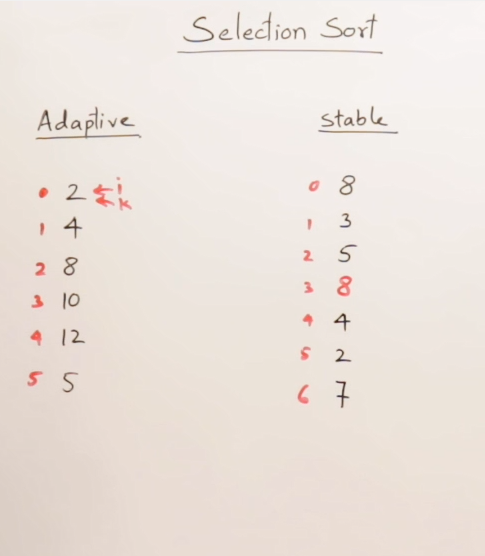 Selection Sort
Adaptive
0 2 ← i
← k
1 4
2 8
3 10
4 12
5 5
stable
0 8
1 3
2 5
3 8
4 4
5 2
6 7